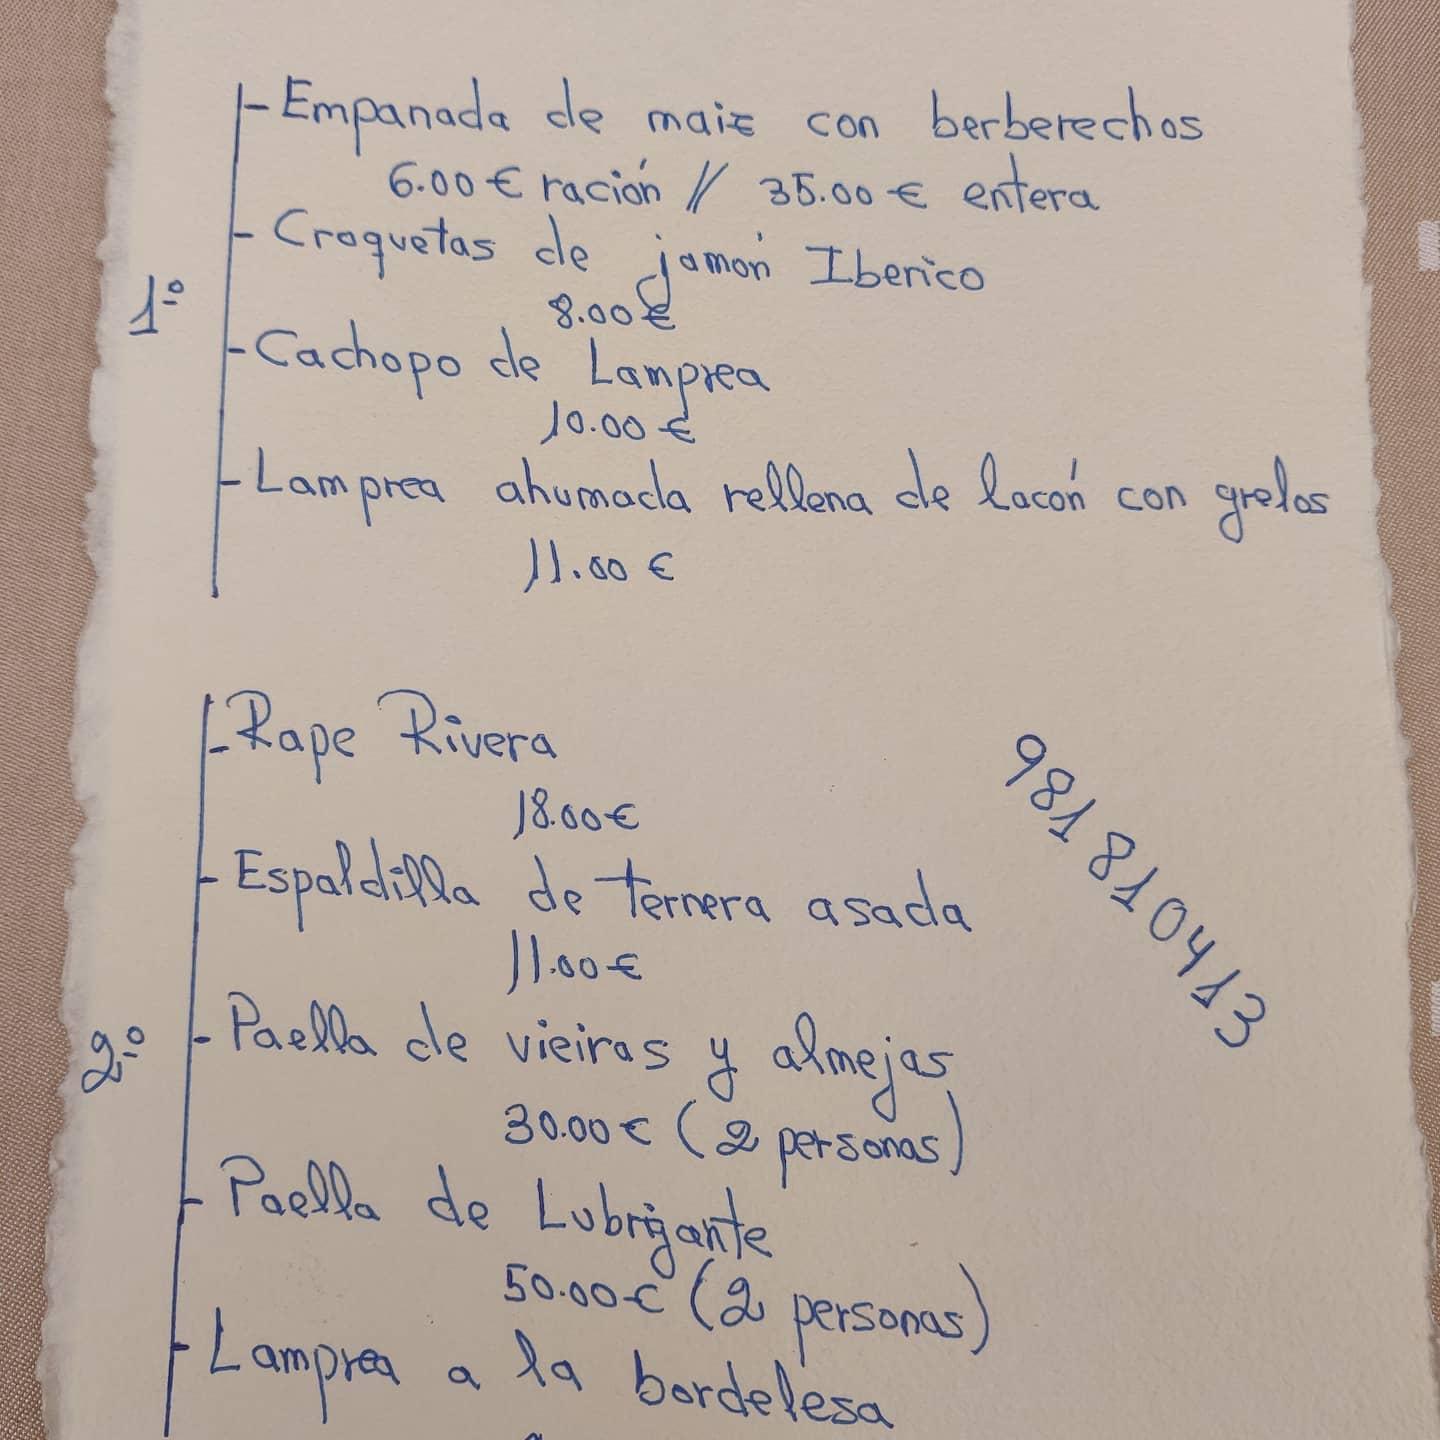 - Empanada de maiz con berberechos
6.00 € ración // 35.00 € entera
- Croquetas de jamón Iberico
8.00 €
1º
- Cachopo de Lamprea
10.00 €
- Lamprea ahumada rellena de lacón con grelos
11.00 €
- Rape Rivera
18.00 €
- Espaldilla de ternera asada
11.00 €
981810413
2º
- Paella de vieiras y almejas
30.00 € (2 personas)
- Paella de Lubrigante
50.00 € (2 personas)
- Lamprea a la bordelesa